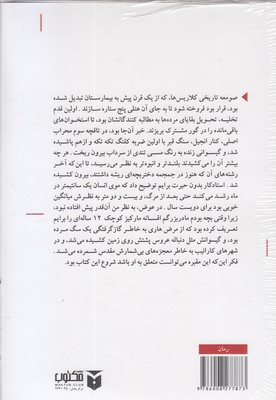 صومعه تاریخی کلاریس‌ها، که از یک قرن پیش به بیمارستان تبدیل شده
بود، قرار بود فروخته شود تا به جای آن هتلی پنج ستاره بسازند. اولین قدم
تخلیه، تحویل بقایای مرده‌ها به مطالبه کنندگانشان بود، تا استخوان‌های
باقی‌مانده را در گور مشترک بریزند. خبر آن‌جا بود. در تاقچه سوم محراب
اصلی، کنار انجیل، سنگ قبر با اولین ضربه کلنگ تکه تکه و ازهم پاشیده
شد، و گیسوانی زنده به رنگ مسی تندی از سرداب بیرون ریخت. هر چه
بیشتر آن را می‌کشیدند بلندتر و انبوه‌تر به نظر می‌رسید، تا این‌که آخر
رشته‌های آن که هنوز در جمجمه دختربچه‌ای ریشه داشتند، بیرون کشیده
شد. استادکار بدون حیرت برایم توضیح داد که موی انسان یک سانتیمتر در
ماه رشد می‌کند حتی بعد از مرگ، و بیست و دو متر به نظرش میانگین
خوبی بود برای دویست سال. در عوض، به نظر من آن‌قدر پیش افتاده نبود،
زیرا وقتی بچه بودم مادربزرگم افسانه مارکیز کوچک ۱۲ ساله‌ای را برایم
تعریف کرده بود که از مرض هاری به خاطر گازگرفتگی یک سگ مرده
بود، و گیسوانش مثل دنباله عروس پشتش روی زمین کشیده می‌شد، و در
شهرهای کارائیب به خاطر معجزه‌های بی‌شمارش مقدس شمرده می‌شد.
فکر این‌که این مقبره می‌توانست متعلق به او باشد شروع این کتاب بود.
رمان
9786008277873
مکتوب
MAKTUB CLUB